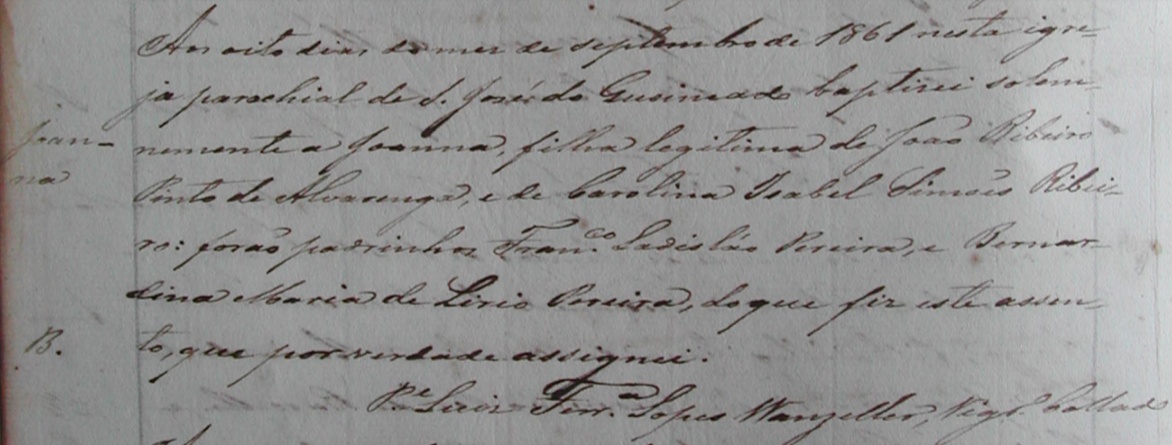 Aos oito dias do mes de septembro de 1861 nesta igre-
ja parochial de S. José do Queimado baptisei solem-
Joan-
nemente a Joanna, filha legitima de João Ribeiro
na
Pinto de Alvarenga, e de Carolina Isabel Simões Ribei-
ro: forão padrinhos Fran.co Ladislão Pereira, e Bernar-
dina Maria de Lirio Pereira, do que fiz este assen-
B.
to, que por verdade assignei.
P.e Luiz Ferr.a Lopes Wanzeller, Vig.o Collado